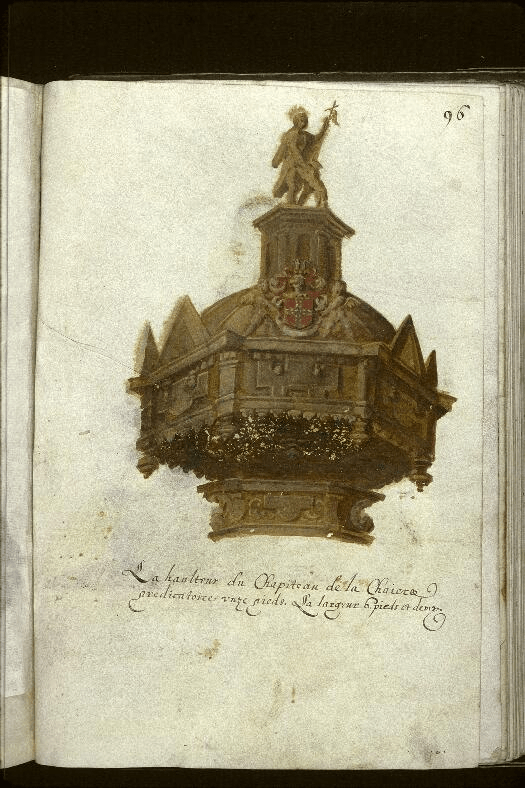 96
La haulteur du Chapiteau de la Chaiere
predicatoire unze pieds. La largeur 6. pieds et demy.